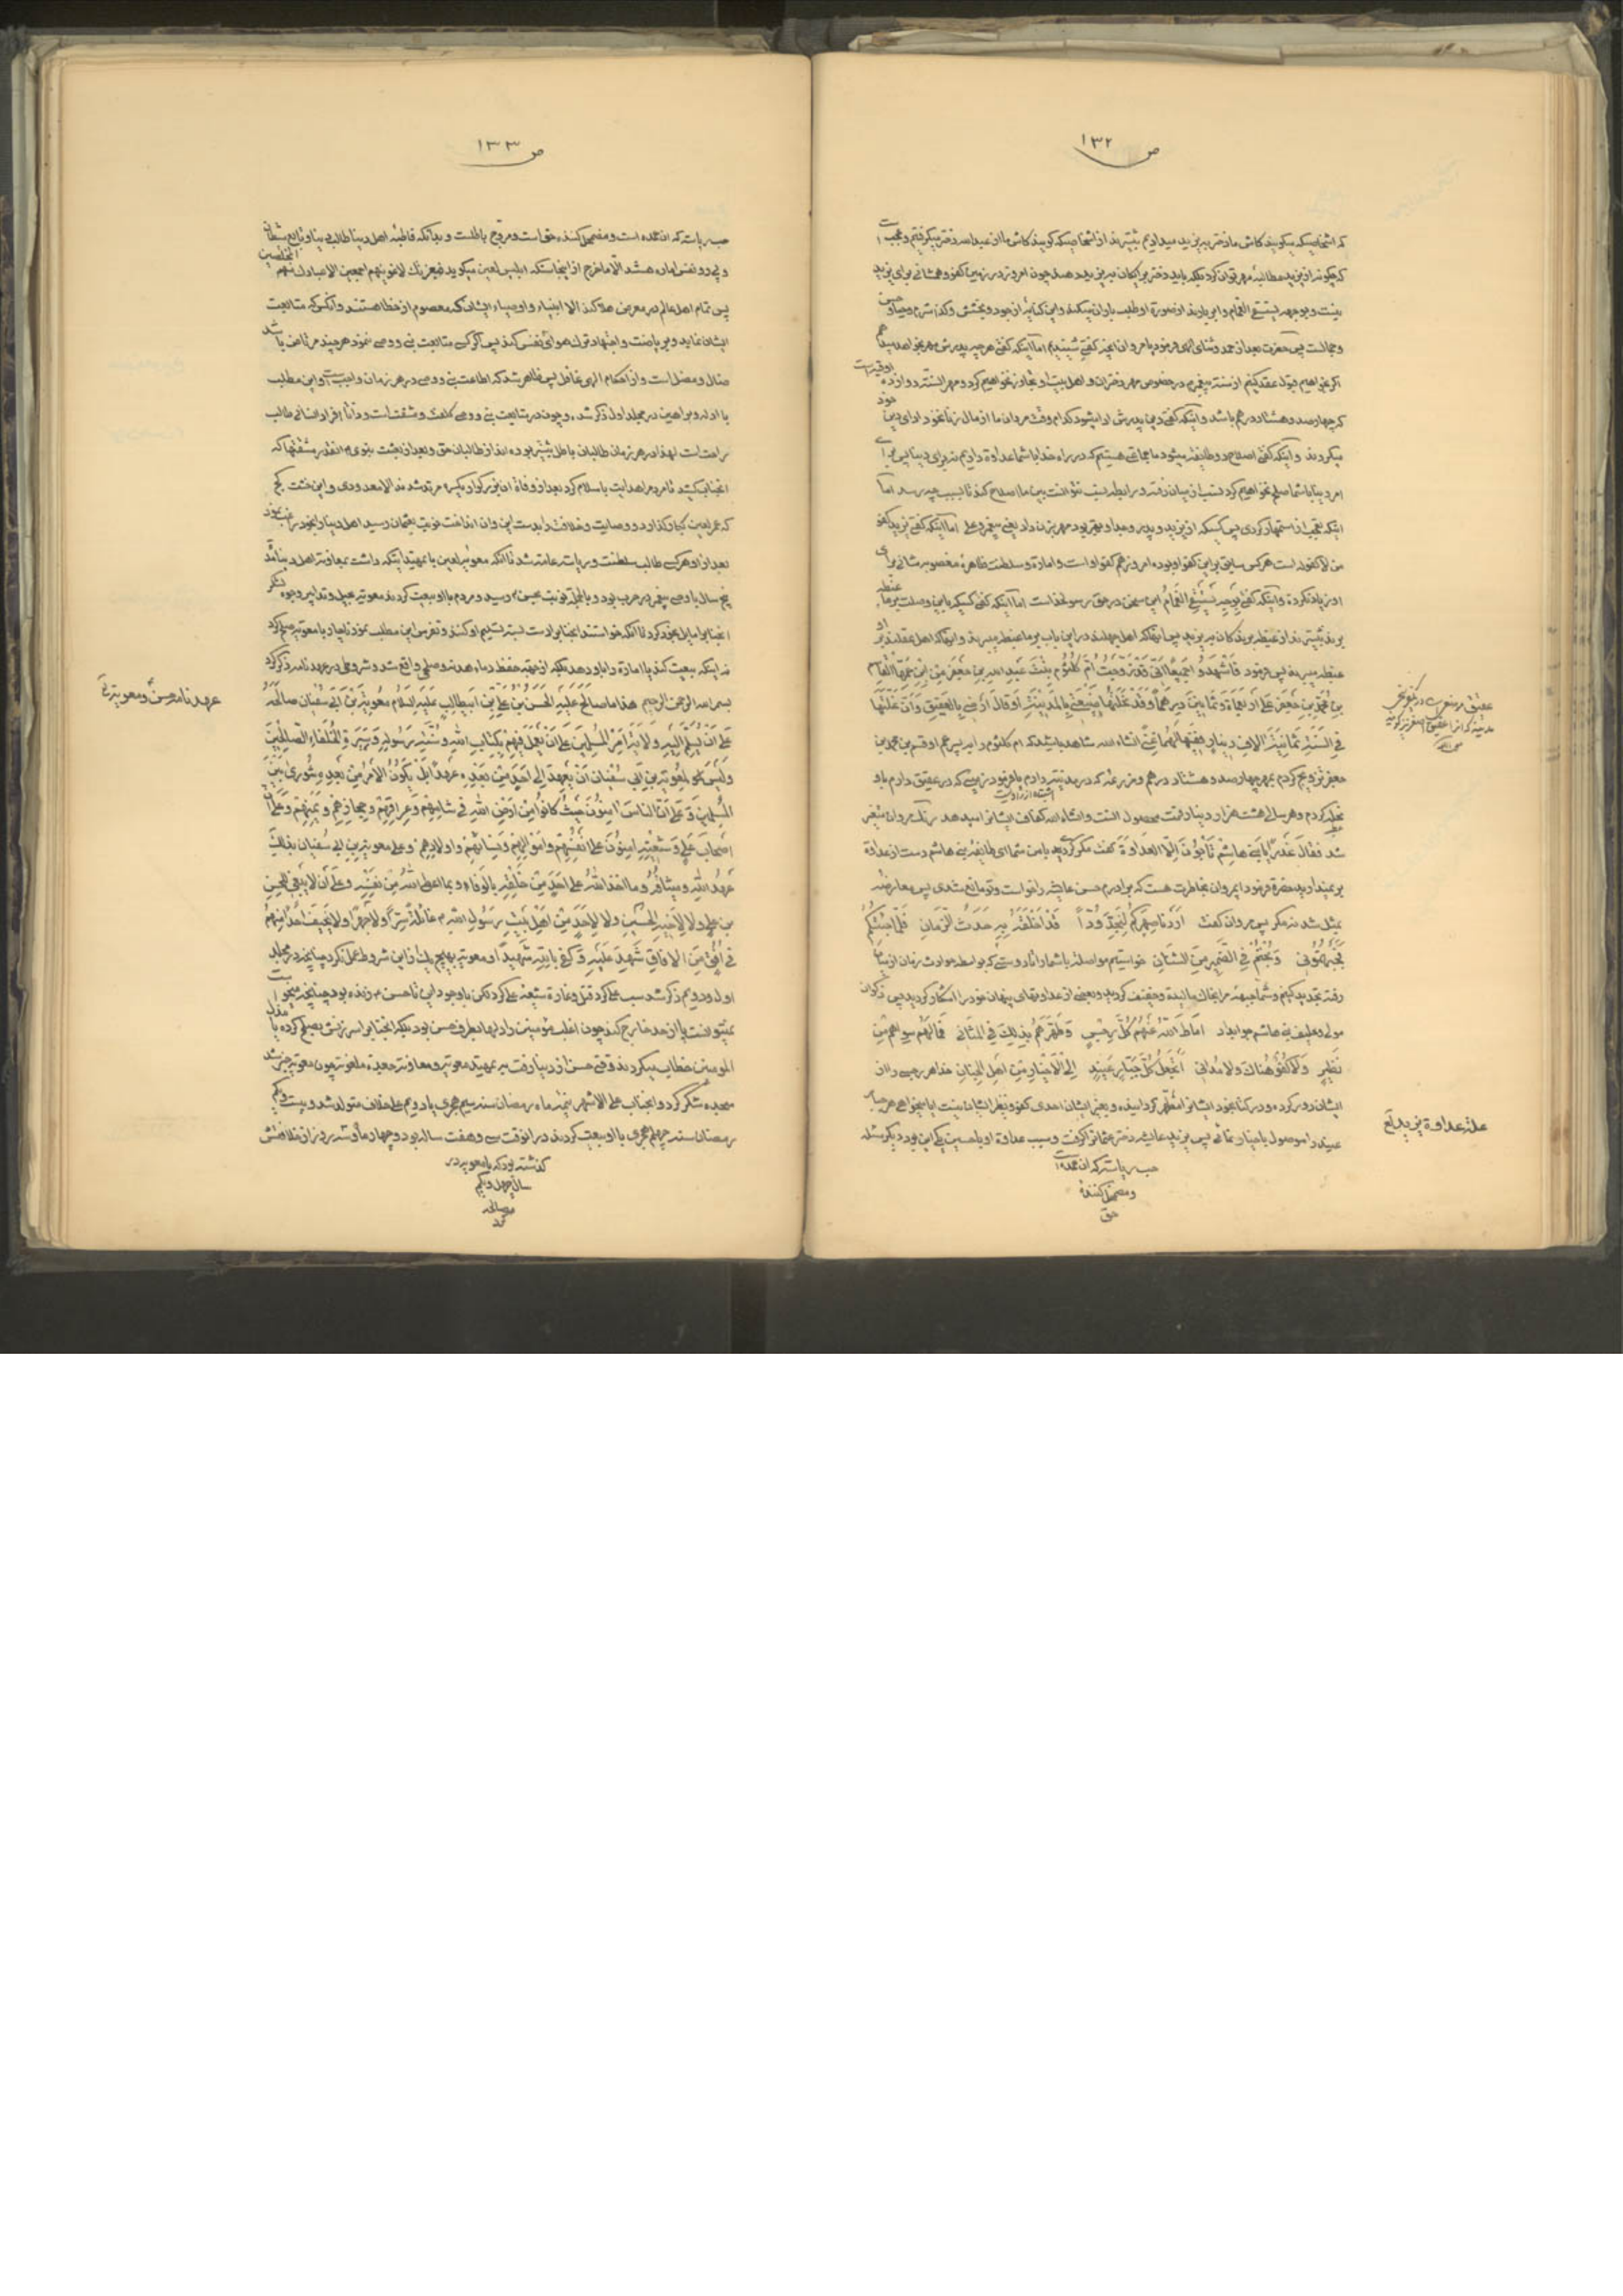 ص ۱۳۲
که اشخاصیکه میگویند کاش ما دختر به یزید میدادیم بیشترند از اشخاصیکه گویند کاش ما از عبدالله دختر میگرفتیم و عجب است
که چگونه از یزید مطالبهٔ مهر توان کرد بلکه باید دختر برایگان به یزید دهند چون امروز در زمین کفو و همشانی برای یزید
نیست و بوجهه یستسقی الغمام و ابر باید از صورة او طلب باران میکند و این کنایه از جود و بخشش و کثرت شرم و حیا و حسن
و جمالست پس حضرت بعد از حمد و ثنای الهی فرمود یا مروان آنچه گفتی شنیدیم اما آنکه گفتی هر چه پدرش مهر بخواهد میدهم
اگر بخواهیم قبول عقد کنیم از سنت پیغمبر در خصوص مهر دختران و اهل بیت او تجاوز نخواهیم کرد و مهر السنة دوازده اوقیه است
که چهارصد و هشتاد درهم باشد و اینکه گفتی دین پدرش ادا میشود کدام وقت مردان ما از مال زنها خود ادای دین خود
میکردند و اینکه گفتی اصلاح دو طایفه میشود ما جماعتی هستیم که در راه خدا با شما عداوة داریم نه برای دنیا پس برای
امر دنیا با شما صلح نخواهیم کرد نسب از میان رفته و رابطه نسب نتوانست بین ما اصلاح کند تا بسبب چه رسد اما
اینکه تعجب از استمهار کردی پس کسیکه از یزید و پدر و جد او بهتر بود مهر بزنان داد یعنی پیغمبر و علی اما آنکه گفتی یزید کفو
من لا کفو له است هر کس سابق بر این کفو او بوده امروز هم کفو او است و امارة و سلطنت ظاهرهٔ مغصوبه شانی برای
او زیاد نکرده و اینکه گفتی بوجهه یستسقی الغمام این سخن در حق رسولخداست اما آنکه گفتی کسیکه باین وصلت بر ما غبطه
برند بیشترند از غبطه برندگان به یزید پس آنها که اهل جهلند در این باب بر ما غبطه میبرند و آنها که اهل عقلند بر او
غبطه میبرند پس فرمود فَاشْهَدُوا جَمِیعًا اَنّی قَدْ زَوَّجْتُ اُمَّ کُلْثُومٍ بِنْتَ عَبدِ اللهِ بنِ جَعْفَرٍ مِنْ اِبْنِ عَمِّهَا القاسِم
بْنِ مُحَمَّدِ بْنِ جَعْفَرٍ عَلی اَرْبَعِمِأَةٍ وَثَمانِینَ دِرْهَماً وَقَدْ نَحَلْتُها ضَیْعَتی بِالْمَدینَةِ اَوْ قالَ اَرْضی بِالْعَقیقِ وَاِنَّ غَلَّتَها
فِی السَّنَةِ ثَمانِیَةُ الافِ دِینارٍ فَفیها لَهُما غِنیً انشاءالله شاهد باشید که ام کلثوم را بپسر عم او قسم بن محمد بن
جعفر تزویج کردم بمهر چهارصد و هشتاد درهم و مزرعه که در مدینه دارم یا فرمود زمینی که در عقیق دارم باو
اشتباه از راویست
نحله کردم و هر سالی هشت هزار دینار قیمت محصول آنست و انشاءالله کفاف ایشانرا میدهد رنگ مروان متغیر
شد فَقالَ غَدْراً یا بَنی هاشِم تَأْبُونَ اِلَّا العَداوَةَ گفت مکر کردید با من شما ای طایفه بنی هاشم دست از عداوة
بر نمیدارید حضرة فرمود ایمروان بخاطرت هست که برادرم حسن عایشه را خواست و تو مانع شدی پس معارضه
بمثل شد نه مکر پس مروان گفت اَرَدْنا صِهْرَکُمْ لِنُجَدِّدَ وُدّاً قَدْ اَخْلَقَهُ بِهِ حَدَثُ الزَّمانِ فَلَمّا جِئْتُکُمْ
فَجَبَهْتُمُونی وَبُحْتُمْ فِی الضَّمیرِ مِنَ الشَّنانِ خواستیم مواصله با شما را تا دوستی که بواسطه حوادث زمان از میان
رفته تجدید کنیم و شما جبههٔ مرا بخاک مالیده و خفیف کردید و بعضی از عداوتهای پنهان خود را آشکار کردید پس ذکوان
مولی و حلیف بنی هاشم جوابداد اَماطَ اللهُ عَنْهُمْ کُلَّ رِجْسٍ وَطَهَّرَهُمْ بِذلِکَ فِی المَثانی فَما لَهُمْ سِواهُمْ مِنْ
نَظیرٍ وَلا کُفْوٌ هُناکَ وَلا مُدانی اَتَجْعَلُ کُلَّ جَبّارٍ عَنیدٍ اِلَی الاَخْیارِ مِنْ اَهْلِ الجِنانِ خدا هر رجسی را از
ایشان دور کرده و در کتاب خود ایشانرا مطهر گردانیده و بغیر ایشان احدی کفو و نظیر ایشان نیست آیا میخواهی هر جبار
عنیدی را موصول باخیار نمائی پس یزید عایشه دختر عثمانرا گرفت و سبب عداوة او با حسین یکی این بود دیگر مسئله
حب ریاست که آن عمده است
و مضمحل کننده
حق
عقیق در مغرب در نزدیکی
مدینه که آنرا عقیق اصغر نیز گویند
علة عداوة یزید لع
ص ۱۳۳
حب ریاست که آن عمده است و مضمحل کننده حق است و مروج باطلست و بجهة آنکه قاطبهٔ اهل دنیا طالب دنیا و تابع شیطان
پس تمام اهل عالم در معرض هلاکند الا انبیاء و اوصیاء ایشان که معصوم از خطا هستند و آنکس که متابعت
ایشان نماید و بریاضت و اجتهاد ترک هوای نفس کند پس اگر کسی متابعت نبی و وصی ننمود هر چند مرتاض باشد
ضال و مضل است و از احکام الهی غافل پس ظاهر شد که اطاعت نبی و وصی در هر زمان واجب است و این مطلب
با ادله و براهین در مجلد اول ذکر شد و چون در متابعت نبی و وصی کلفت و مشقت است و ذاتاً افراد انسانی طالب
راحت است لهذا در هر زمان طالبان باطل بیشتر بوده اند از طالبان حق و بعد از بعثت نبوی ص آنقدر مشقتها که
آنجناب کشید تا مردمرا هدایت باسلام کرد بعد از وفاة آن بزرگوار یکسره مرتد شدند الا معدودی و این خشت کج
که عمر لعین گذارد و وصایت و خلافت را بدست این و آن انداخت نوبت بعثمان رسید اهل دنیا را بخود راغب نمود
بعد از او هر کس طالب سلطنت و ریاست عامه شد تا آنکه معویه لعین با تمهیداتیکه داشت بمعاونة اهل دنیا مدت
پنج سال با وصی پیغمبر در حرب بود و بالجملة نوبت بحسن ع رسید و مردم با او بیعت کردند معویه بحیل و تدابیر وجوه لشکر
آنجنابرا مایل بخود کرد تا آنکه خواستند آنجنابرا دست بسته تسلیم او کنند و تفرس این مطلب نمود ناچار با معویه صلح کرد
نه اینکه بیعت کند یا امارة را باو دهد بلکه از جهة حفظ دماء هدنه و صلحی واقع شد و شروطی در عهدنامه ذکر کرد
بسم الله الرحمن الرحیم هذا ما صالَحَ عَلَیْهِ الحَسَنُ بْنُ عَلِیِّ بْنِ اَبیطالِبٍ عَلَیْهِ السَّلامُ مُعَویَةَ بْنَ اَبی سُفْیانَ صالَحَهُ
عَلی اَنْ یُسَلِّمَ اِلَیْهِ وَلایَةَ اَمْرِ المُسْلِمینَ عَلی اَنْ یَعْمَلَ فیهِمْ بِکِتابِ اللهِ وَسُنَّةِ رَسُولِهِ وَسیرَةِ الخُلَفاءِ الصّالِحینَ
وَلَیْسَ لِمُعویَةَ بْنِ اَبی سُفْیانَ اَنْ یَعْهَدَ اِلی اَحَدٍ مِنْ بَعْدِهِ عَهْداً بَلْ یَکُونُ الاَمْرُ مِنْ بَعْدِهِ شُوری بَیْنَ
المُسْلِمینَ وَعَلی اَنَّ النّاسَ امِنُونَ حَیْثُ کانُوا مِنْ اَرْضِ اللهِ فی شامِهِمْ وَعِراقِهِمْ وَحِجازِهِمْ وَیَمَنِهِمْ وَعَلی اَنَّ
اَصْحابَ عَلِیٍّ وَشیعَتَهُ امِنُونَ عَلی اَنْفُسِهِمْ وَاَمْوالِهِمْ وَنِسائِهِمْ وَاَولادِهِمْ وَعَلی مُعویَةَ بْنِ اَبی سُفْیانَ بِذلِکَ
عَهْدُ اللهِ وَمیثاقُهُ وَما اَخَذَ اللهُ عَلی اَحَدٍ مِنْ خَلْقِهِ بِالوَفاءِ وَبِما اَعْطَی اللهُ مِنْ نَفْسِهِ وَعَلی اَنْ لا یَبْغی لِلْحَسَنِ
بْنِ عَلِیٍّ وَلا لِاَخیهِ الحُسَیْنِ وَلا لِاَحَدٍ مِنْ اَهْلِ بَیْتِ رَسُولِ اللهِ ص غائِلَةً سِرّاً وَلا جَهْراً وَلا یُخیفَ اَحَداً مِنْهُمْ
فی اُفُقٍ مِنَ الافاقِ شَهِدَ عَلَیْهِ وَکَفی بِاللهِ شَهیداً و معویه بهیچ یک از این شروط عمل نکرد چنانچه در مجلد
اول و دویم ذکر شد سب علی کرد قتل و غارة شیعه علی کرد لکن با وجود این تا حسن ع زنده بود
نمیتوانست پا از حد خارج کند چون اغلب مؤمنین را دلها بطرف حسن بود بلکه آنجنابرا سرزنش بصلح کرده یا مذل
المومنین خطاب میکردند وقتی حسن از دنیا رفت بتمهید معویه و معاونة جعده ملعونه چون معویه خبر شد
سجده شکر کرد و آنجناب علی الاشهر نیمهٔ ماه رمضان سنه سیم هجری یا دویم علی خلاف متولد شد و بیست و یکم
رمضان سنه چهلم هجری با او بیعت کردند در آنوقت سی و هفت ساله بود و چهار ماه و سه روز از خلافتش
گذشته بود که با معویه در
سال چهل و یکم
مصالحه
کرد
عهدنامه حسن ع و معویة لع